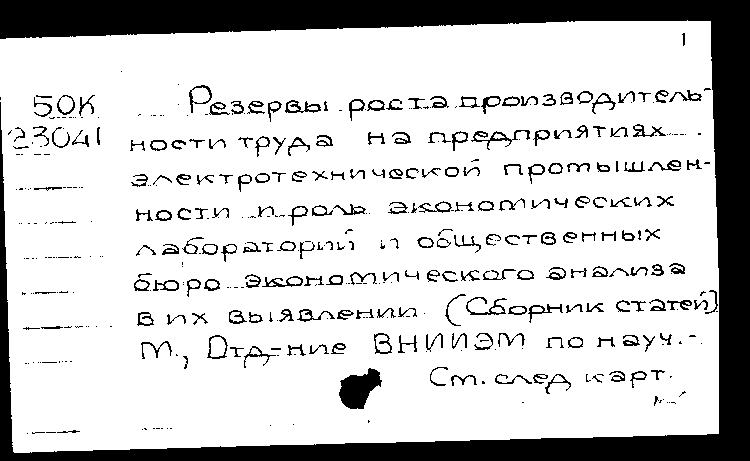 1
50К Резервы роста производитель-
23041 ности труда на предприятиях
электротехнической промышлен-
ности и роль экономических
лабораторий и общественных
бюро экономического анализа
в их выявлении. (Сборник статей)
М., Отд-ние ВНИИЭМ по науч.-
См. след карт.